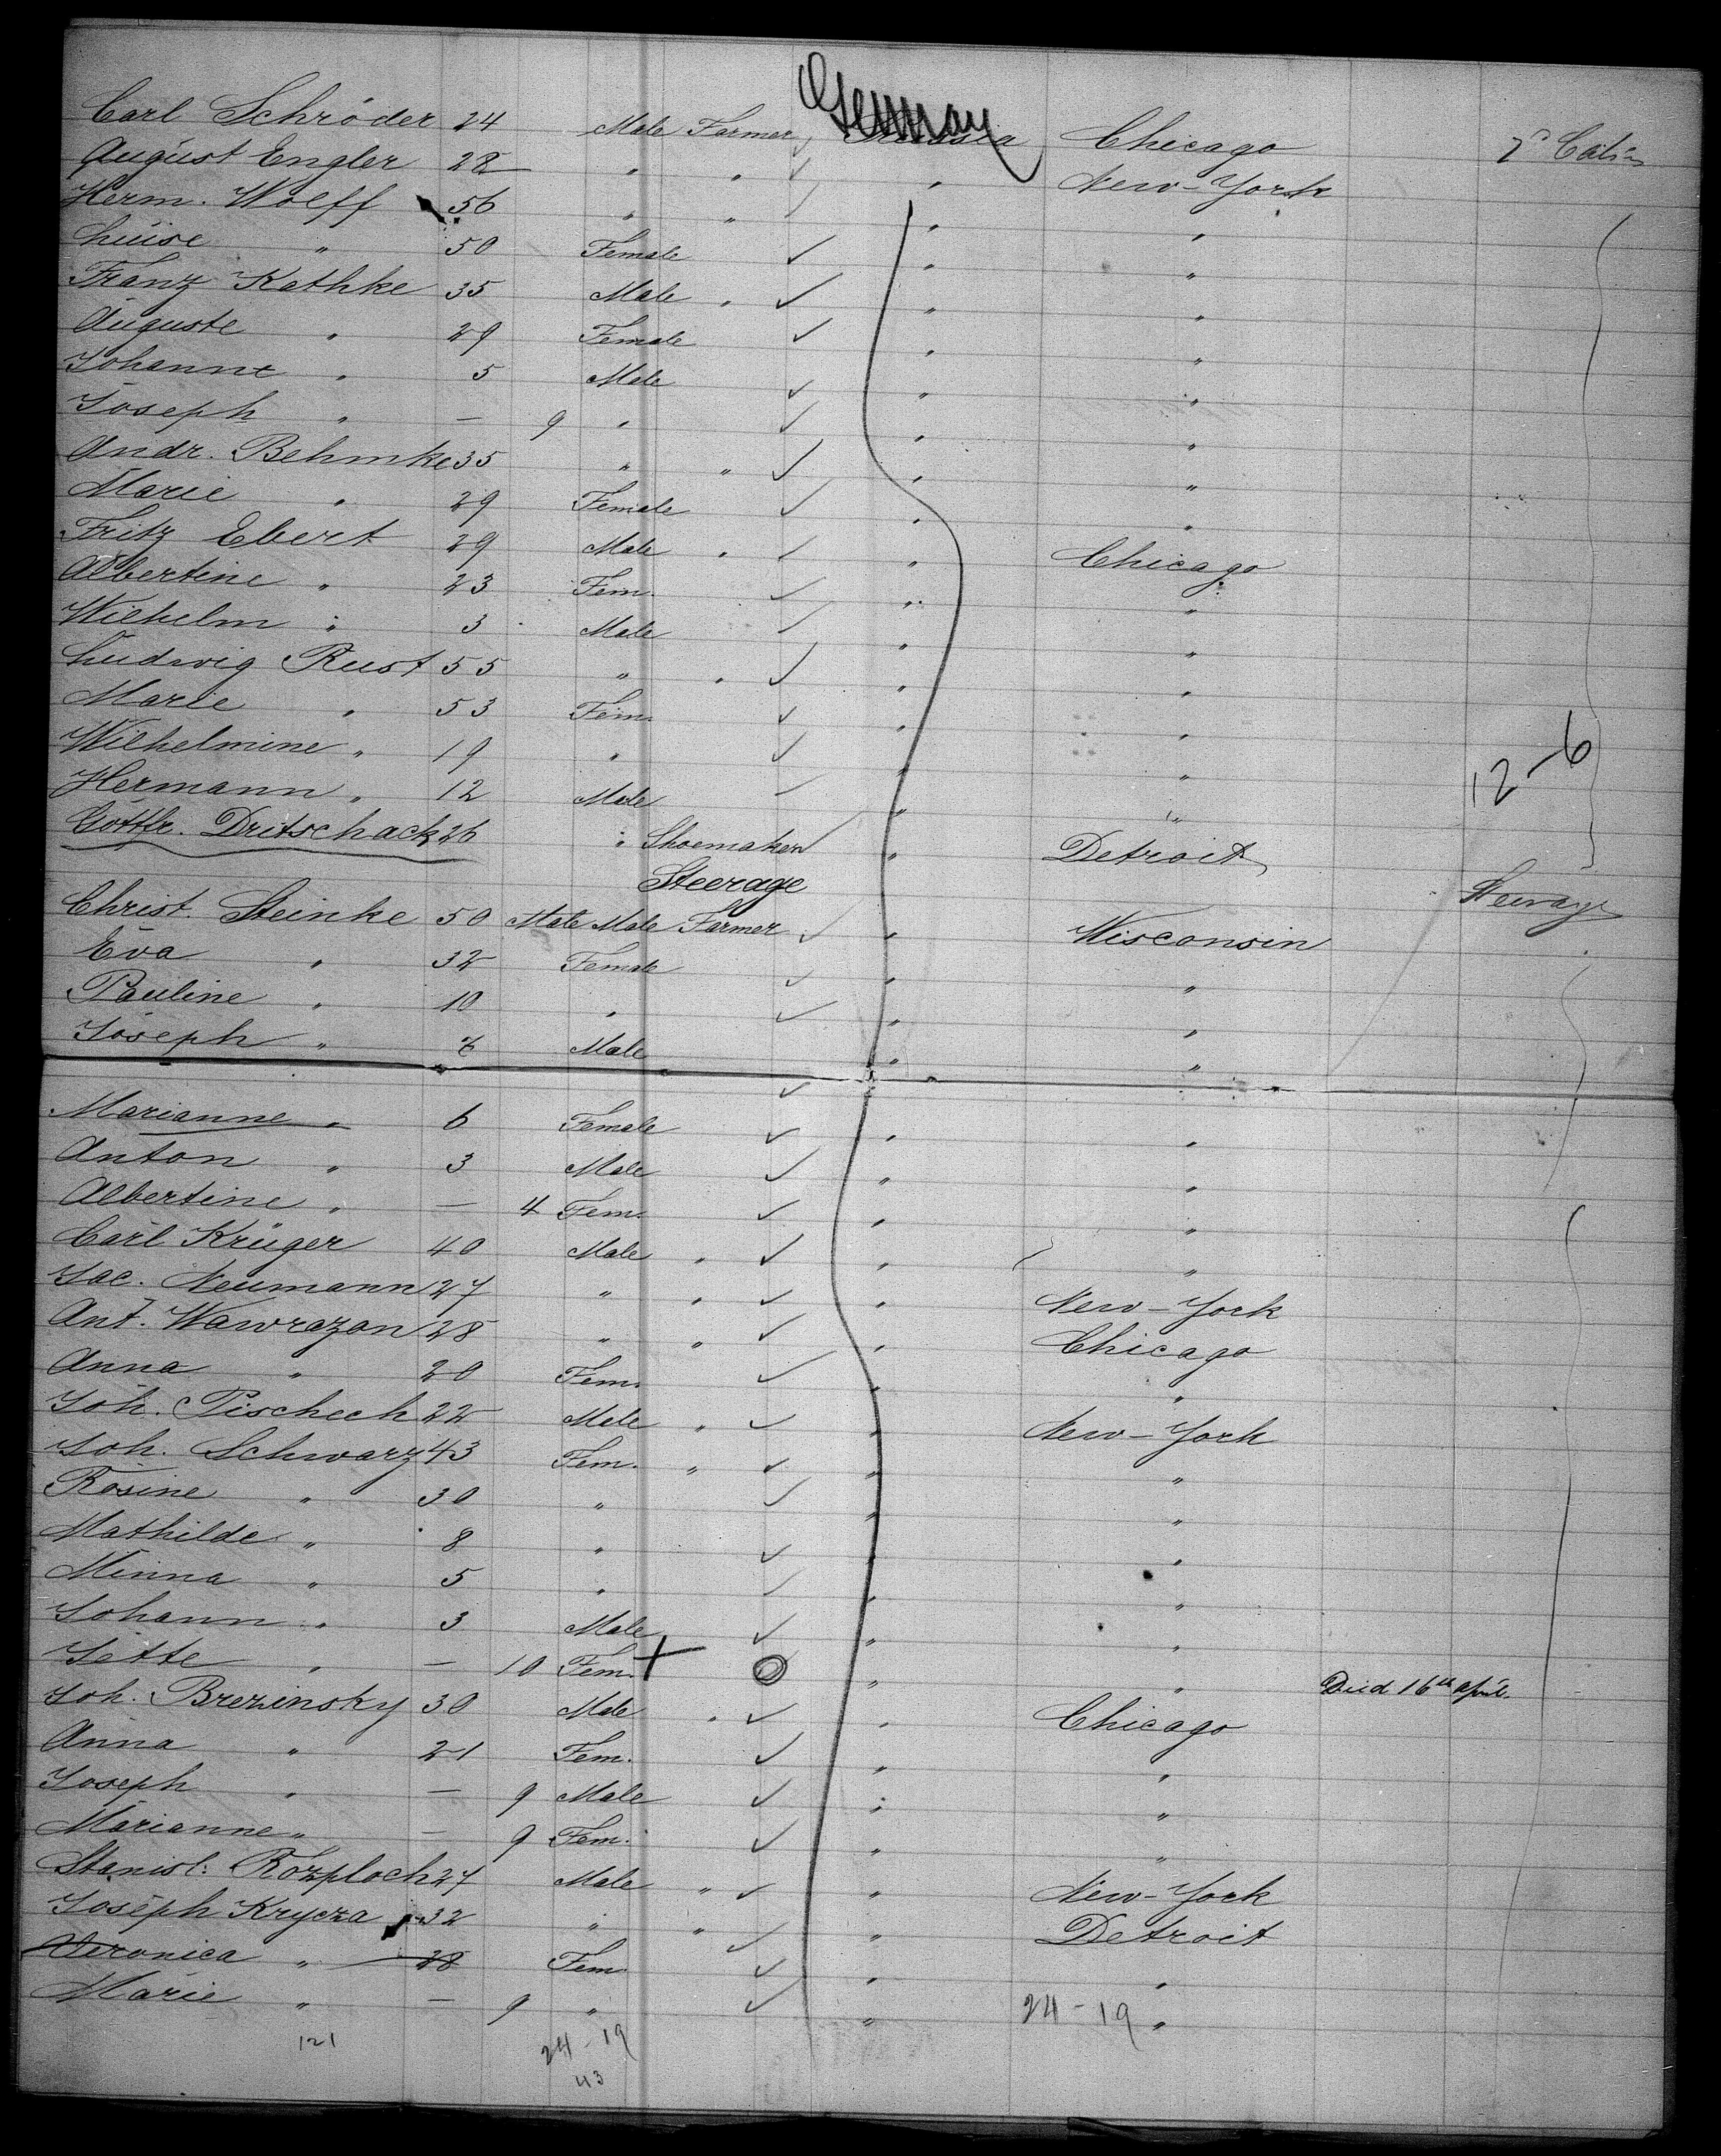 Germany
Carl Schröder 24 Male Farmer Chicago
August Engler 28 " " " New-York
Herm. Wolff 56 " " " "
Luise " 50 Female " "
Franz Kathke 35 Male " " "
Auguste " 29 Female " "
Johanne " 5 Male " "
Joseph " — 9 " " "
Andr. Behmke 35 " " " "
Marie " 29 Female " "
Fritz Ebert 29 Male " " Chicago
Albertine " 23 Fem. " "
Wilhelm " 3 Male " "
Ludwig Rust 55 " " " "
Marie " 53 Fem. " "
Wilhelmine " 19 " " "
12-6
Hermann " 12 Male " "
Gottfr. Dritschack 26 " Shoemaker " Detroit
Steerage Steerage
Christ. Steinke 50 Male Male Farmer " Wisconsin
Eva " 32 Female " "
Pauline " 10 " " "
Joseph " Male " "
Marianne " 6 Female " "
Anton " 3 Male " "
Albertine " — 4 Fem. " "
Carl Krüger 40 Male " " "
Jac. Neumann 27 " " " New-York
Ant. Wawrazon 28 " " " Chicago
Anna " 20 Fem. " "
Joh. Pischech 22 Male " " New-York
Joh. Schwarz 43 Fem. " " "
Rosine " 30 " " "
Mathilde " 8 " " "
Minna " 5 " " "
Johann " 3 Male " "
Jette " — 10 Fem. " " Died 16th April.
Joh. Brezinsky 30 Male " " Chicago
Anna " 21 Fem. " "
Joseph " — 9 Male " "
Marianne " — 9 Fem. " "
Stanisl. Rozploch 27 Male " " New-York
Joseph Krycza 32 " " " Detroit
Veronica " 28 Fem " "
Marie " — 9 " " "
24-19
121 24-19
43